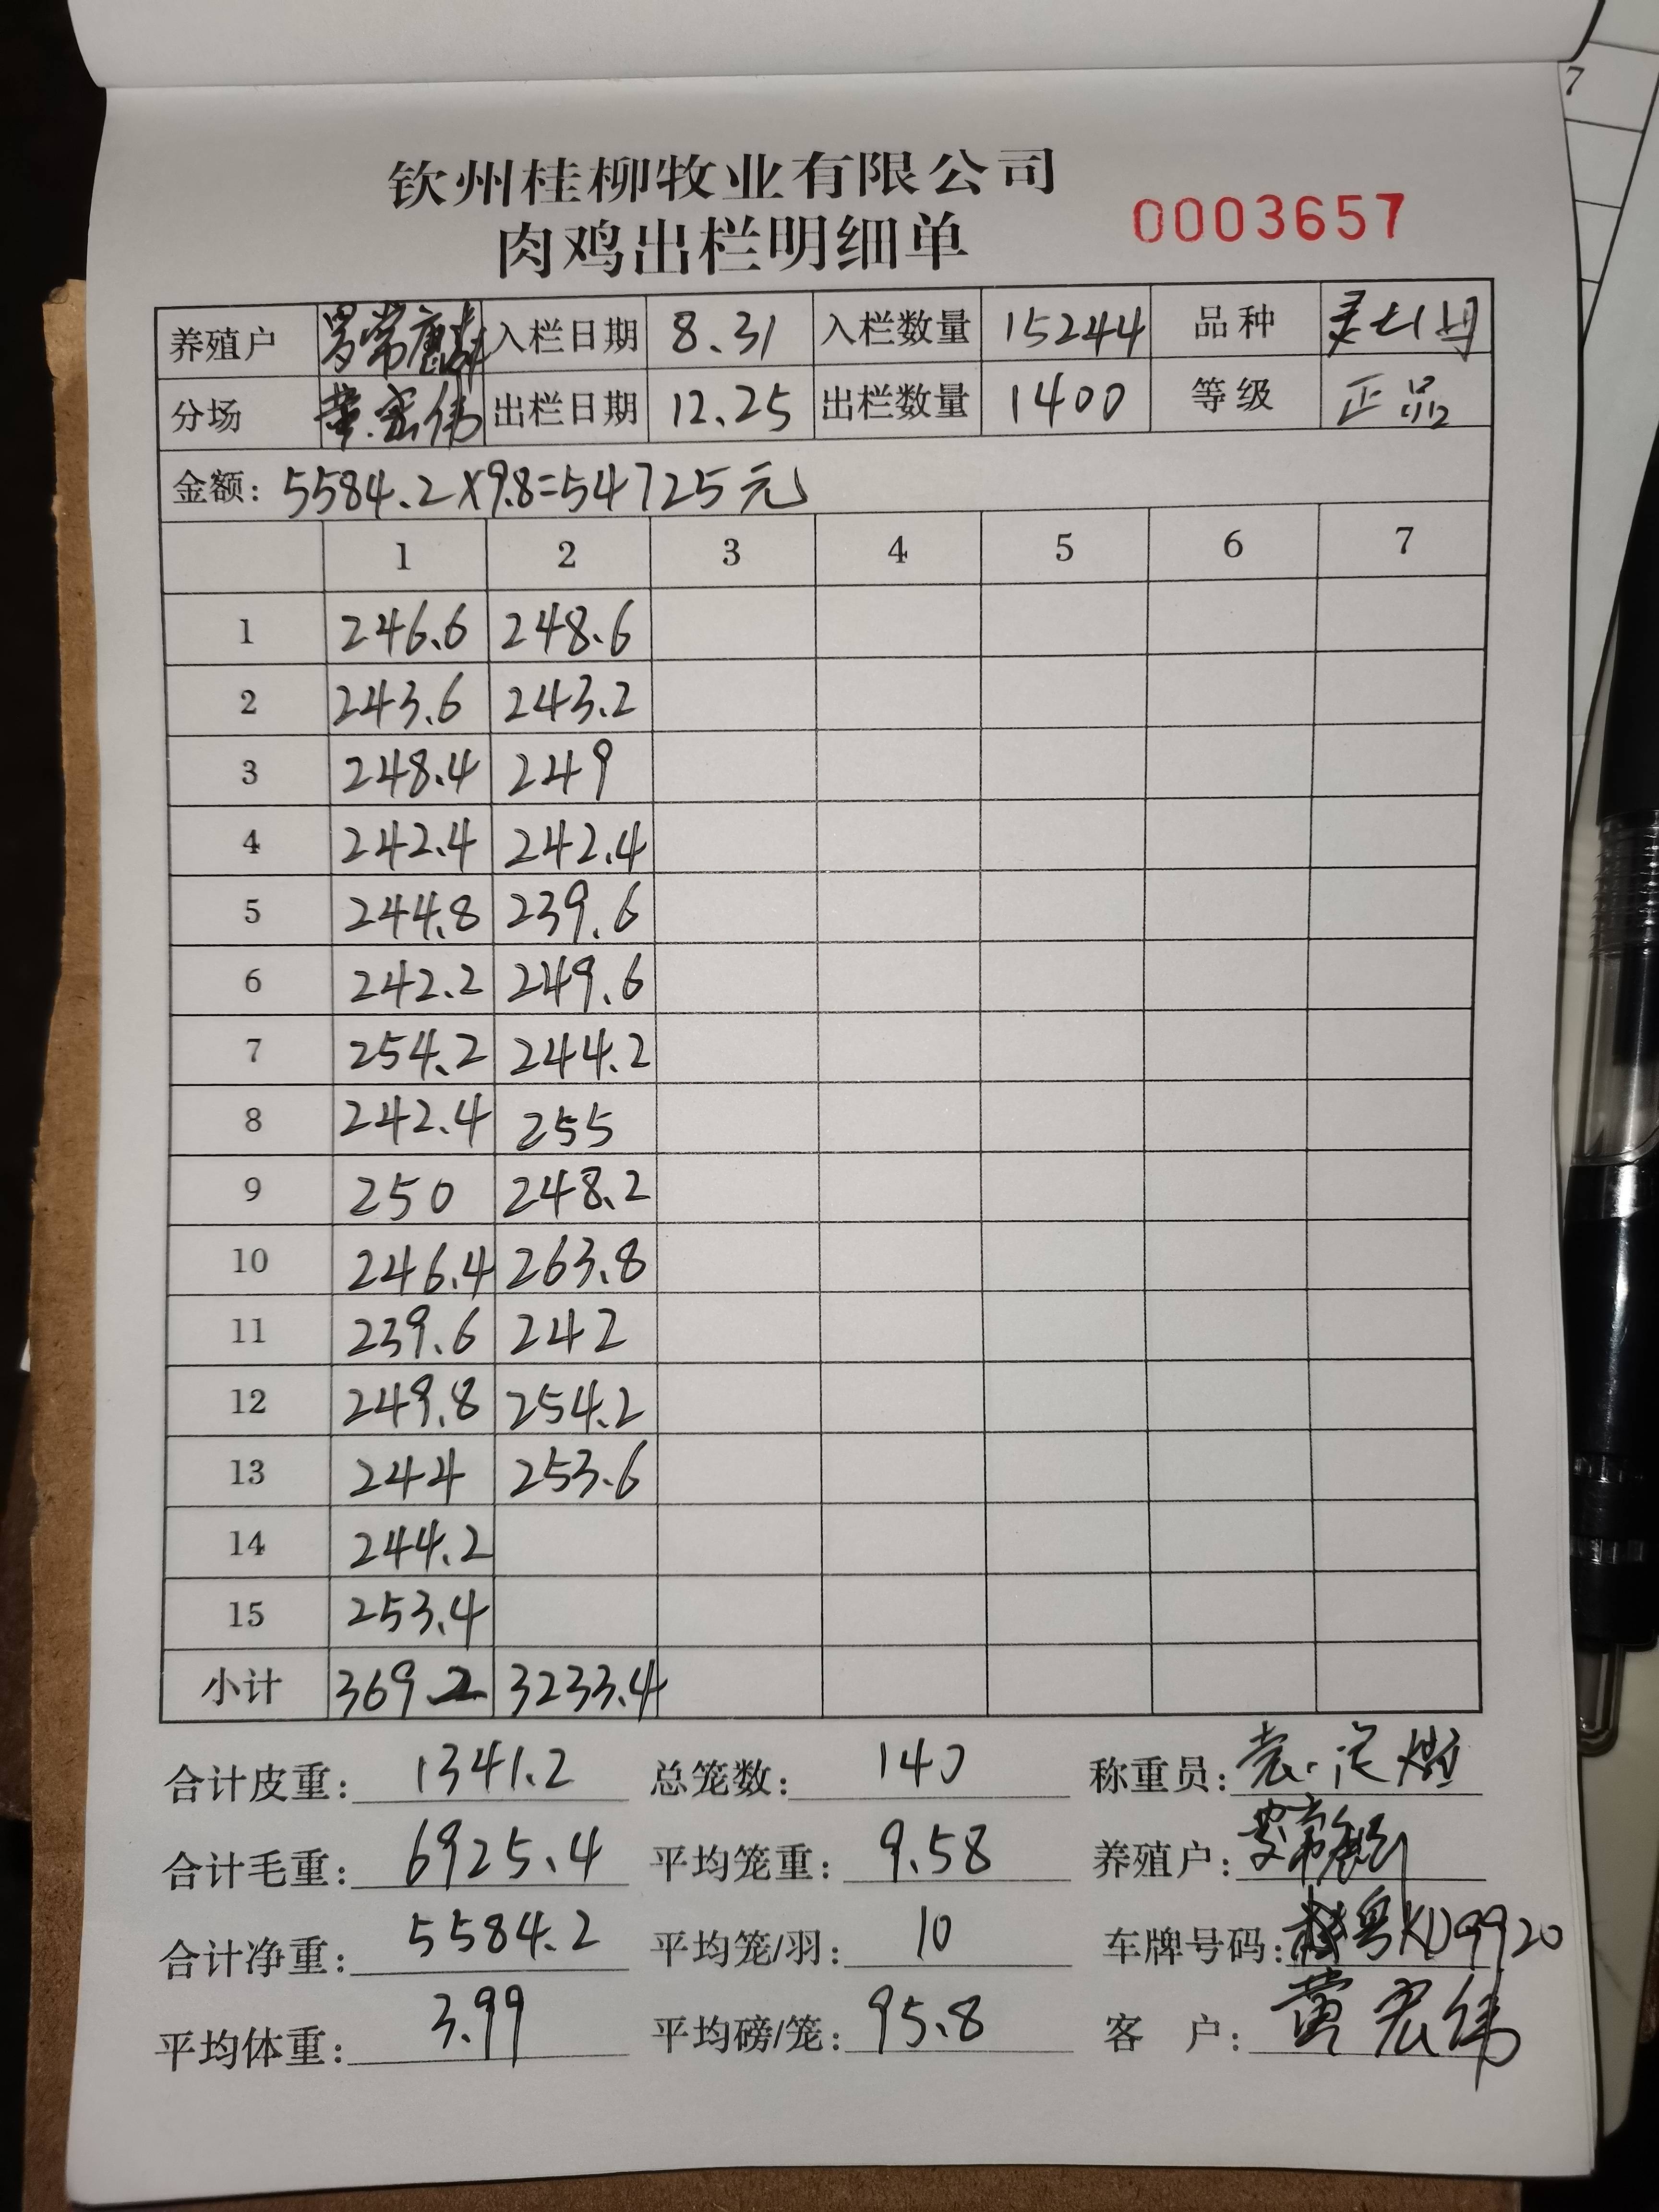 钦州桂柳牧业有限公司
肉鸡出栏明细单 0003657
养殖户 入栏日期 8.31 入栏数量 15244 品种
分场 黄宏伟 出栏日期 12.25 出栏数量 1400 等级 正品
金额: 5584.2×9.8=54725元
1 2 3 4 5 6 7
1 246.6 248.6
2 243.6 243.2
3 248.4 249
4 242.4 242.4
5 244.8 239.6
6 242.2 249.6
7 254.2 244.2
8 242.4 255
9 250 248.2
10 246.4 263.8
11 239.6 242
12 249.8 254.2
13 244 253.6
14 244.2
15 253.4
小计 369.2 3233.4
合计皮重: 1341.2 总笼数: 140 称重员:
合计毛重: 6925.4 平均笼重: 9.58 养殖户:
合计净重: 5584.2 平均笼/羽: 10 车牌号码: 粤KD9920
平均体重: 3.99 平均磅/笼: 95.8 客 户: 黄宏伟
7